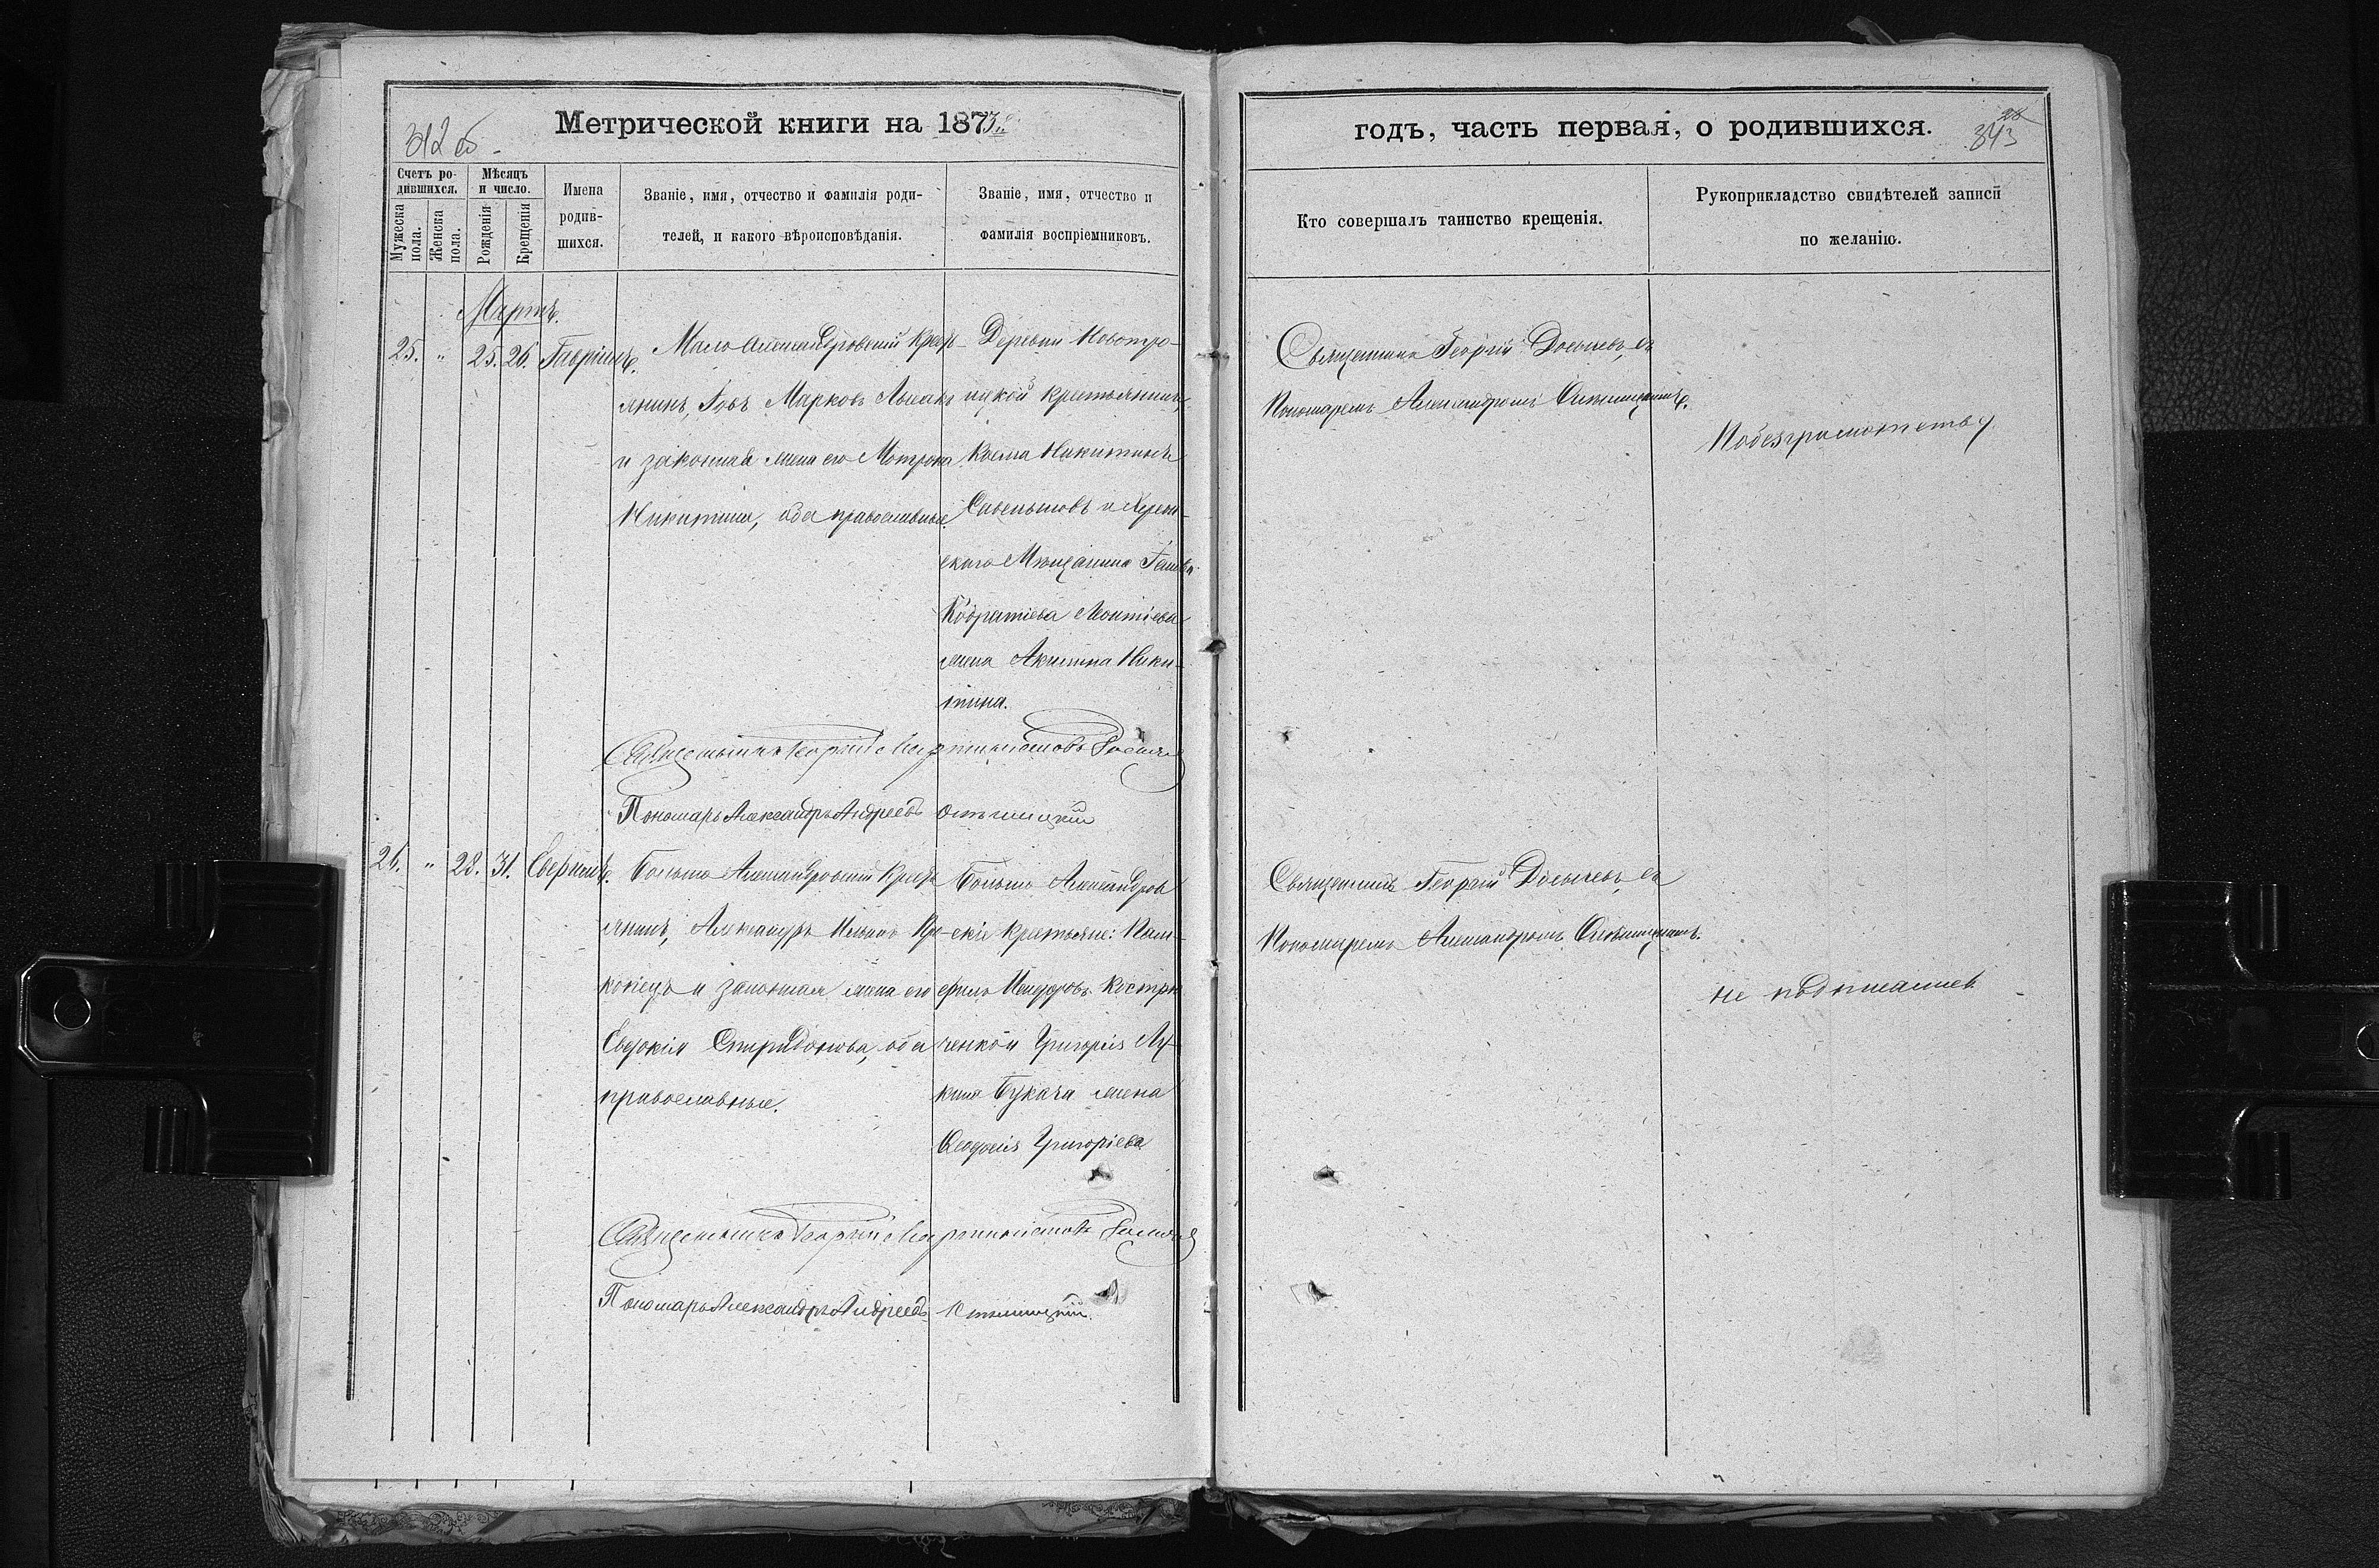 Метрической книги на 1873
312 об
Счетъ ро-
дившихся.
Мужеска пола.
Женска пола.
Мѣсяцъ
и число.
Рожденія
Крещенія
Имена
родив-
шихся.
Званіе, имя, отчество и фамилія роди-
телей, и какого вѣроисповѣданія.
Званіе, имя, отчество и
фамилія воспріемниковъ.
Мартъ.
25. " 25. 26. Гавріилъ.
Мало Александровскій Кресть-
янинъ, Іовъ Марковъ
и законная жена его Мотрона
Никитина, оба православные.
Деревни Новотро-
ицкой крестьянинъ,
Косма Никитинъ
Савельевъ и Херсон-
скаго Мѣщанина
Кодратіева Леонтіева
жена Акилина Ники-
тина.
Священникъ Георгій
Пономарь Александръ Андреевъ
26. " 28. 31.
Больше Александровскій Кресть-
янинъ, Александръ Ильинъ Про-
копецъ и законная жена его
Евдокія Спиридонова, оба
православные.
Больше Александров-
скіе крестьяне: Пам-
филъ Исидоровъ Костри-
ченко и Григорія Лу-
кина Букача жена
Ѳеодосія Григоріева
Священникъ Георгій
Пономарь Александръ Андреевъ
годъ, часть первая, о родившихся.
343
Кто совершалъ таинство крещенія.
Рукоприкладство свидѣтелей записи
по желанію.
Священникъ Георгій съ
Пономаремъ Александромъ
По безграмотству
Священникъ Георгій съ
Пономаремъ Александромъ
не подписались